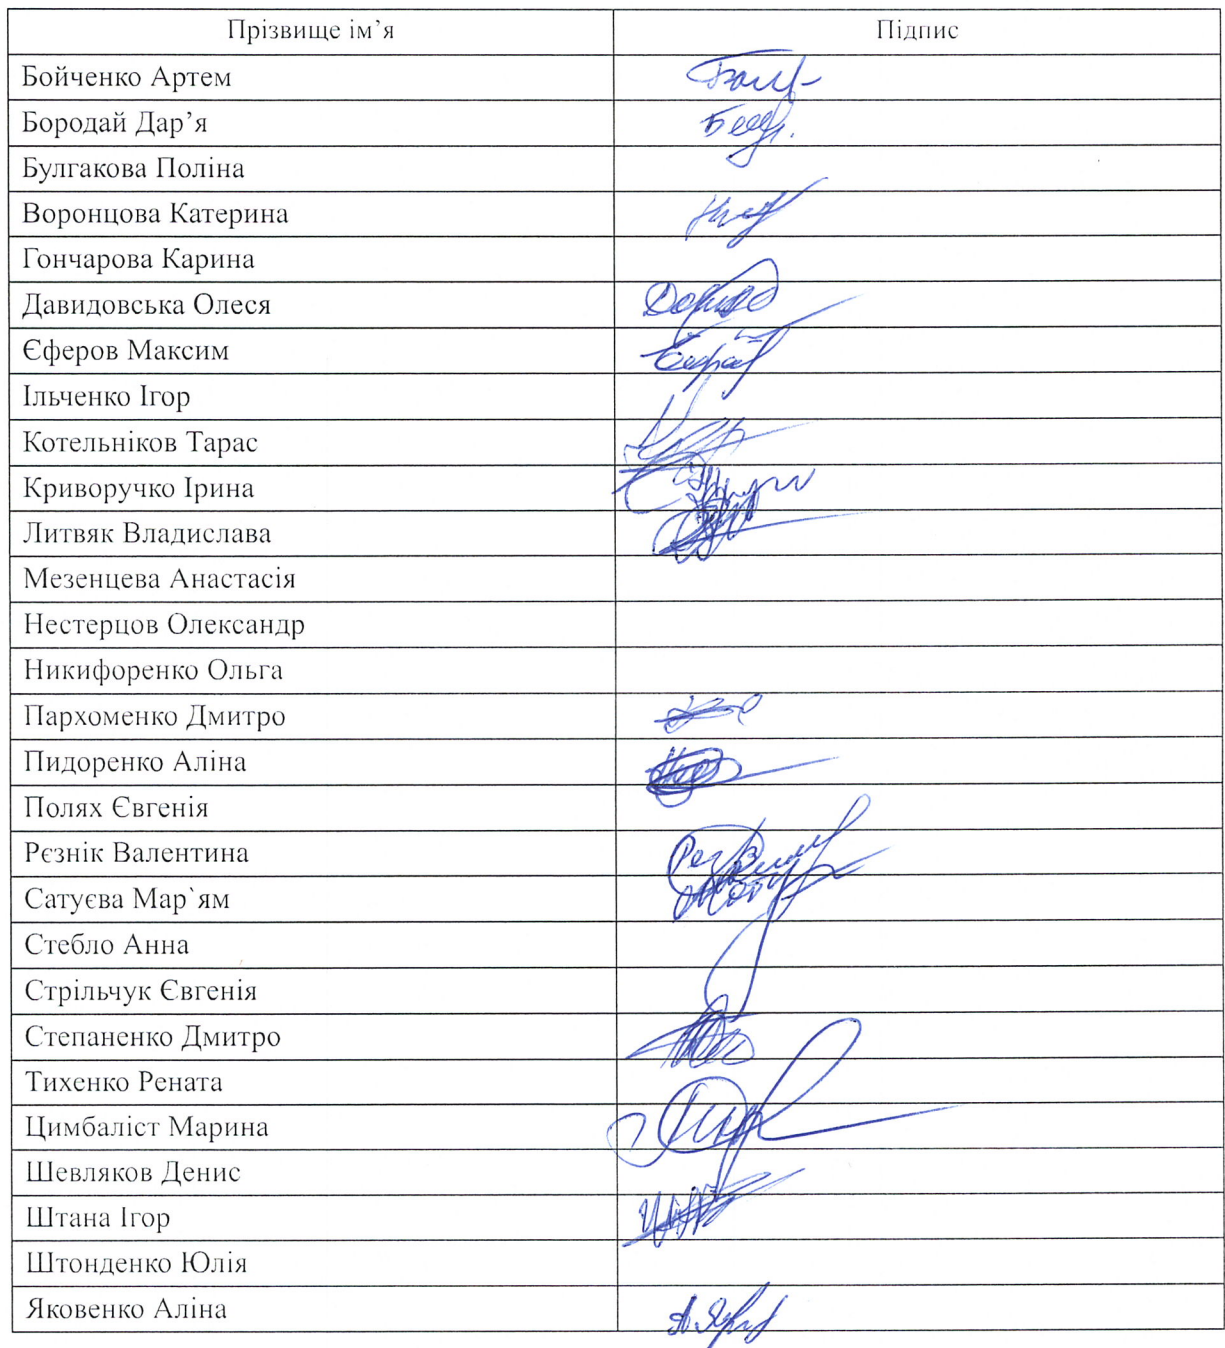 Прізвище ім’я Підпис
Бойченко Артем
Бородай Дар’я
Булгакова Поліна
Воронцова Катерина
Гончарова Карина
Давидовська Олеся
Єферов Максим
Ільченко Ігор
Котельніков Тарас
Криворучко Ірина
Литвяк Владислава
Мезенцева Анастасія
Нестерцов Олександр
Никифоренко Ольга
Пархоменко Дмитро
Пидоренко Аліна
Полях Євгенія
Рєзнік Валентина
Сатуєва Мар`ям
Стебло Анна
Стрільчук Євгенія
Степаненко Дмитро
Тихенко Рената
Цимбаліст Марина
Шевляков Денис
Штана Ігор
Штонденко Юлія
Яковенко Аліна